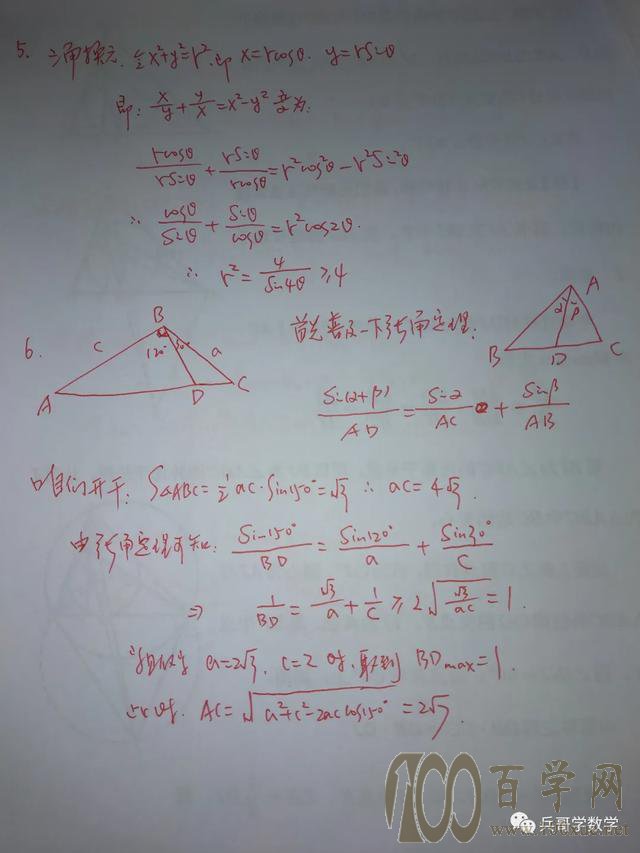 5. 三角换元. 令x²+y²=r². 即 x=rcosθ. y=rsinθ
即: x/y + y/x = x²-y² 变为:
rcosθ/rsinθ + rsinθ/rcosθ = r²cos²θ - r²sin²θ
∴ cosθ/sinθ + sinθ/cosθ = r²cos2θ.
∴ r² = 4/sin4θ ≥ 4
6.
B
c
120° 30°
a
A
D
C
首先普及一下张角定理:
A
α β
B
D
C
sin(α+β)/AD = sinα/AC + sinβ/AB
咱们开干: S△ABC = ½ac·sin150° = √3 ∴ ac = 4√3.
由张角定理可知: sin150°/BD = sin120°/a + sin30°/c
⇒ 1/BD = √3/a + 1/c ≥ 2√(√3/ac) = 1.
当且仅当 a=2√3, c=2 时, 取到 BDmax=1.
此时. AC = √(a²+c²-2accos150°) = 2√7.
100百学网
兵哥学数学